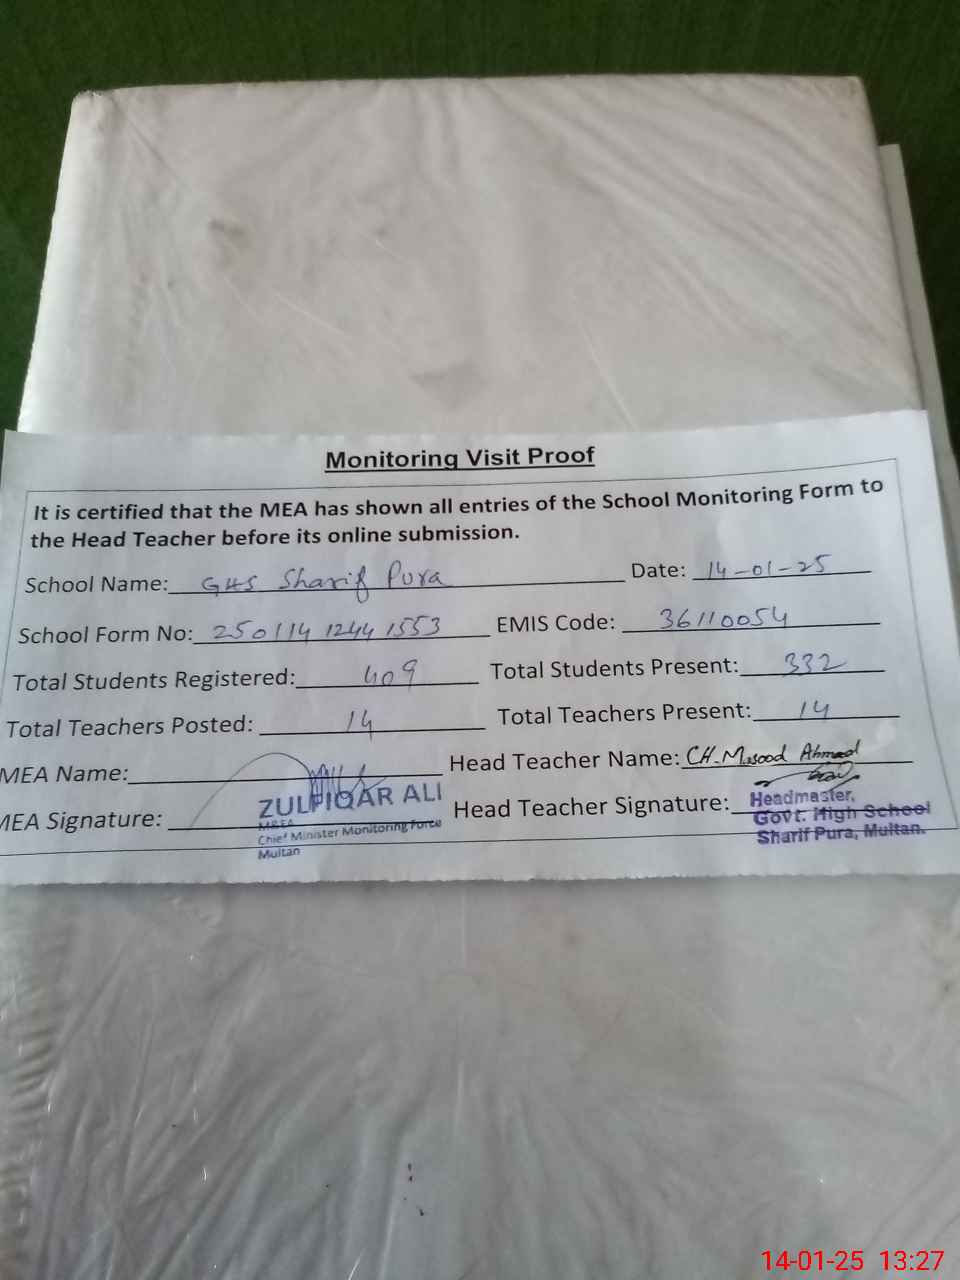 Monitoring Visit Proof
It is certified that the MEA has shown all entries of the School Monitoring Form to
the Head Teacher before its online submission.
School Name: GHS Sharif Pura Date: 14-01-25
School Form No: 250114 1244 1553 EMIS Code: 36110054
Total Students Registered: 409 Total Students Present: 332
Total Teachers Posted: 14 Total Teachers Present: 14
MEA Name: Head Teacher Name: CH. Masood Ahmad
MEA Signature: ZULFIQAR ALI Head Teacher Signature: Headmaster,
Chief Minister Monitoring Force Govt. High School
Multan Sharif Pura, Multan.
14-01-25 13:27